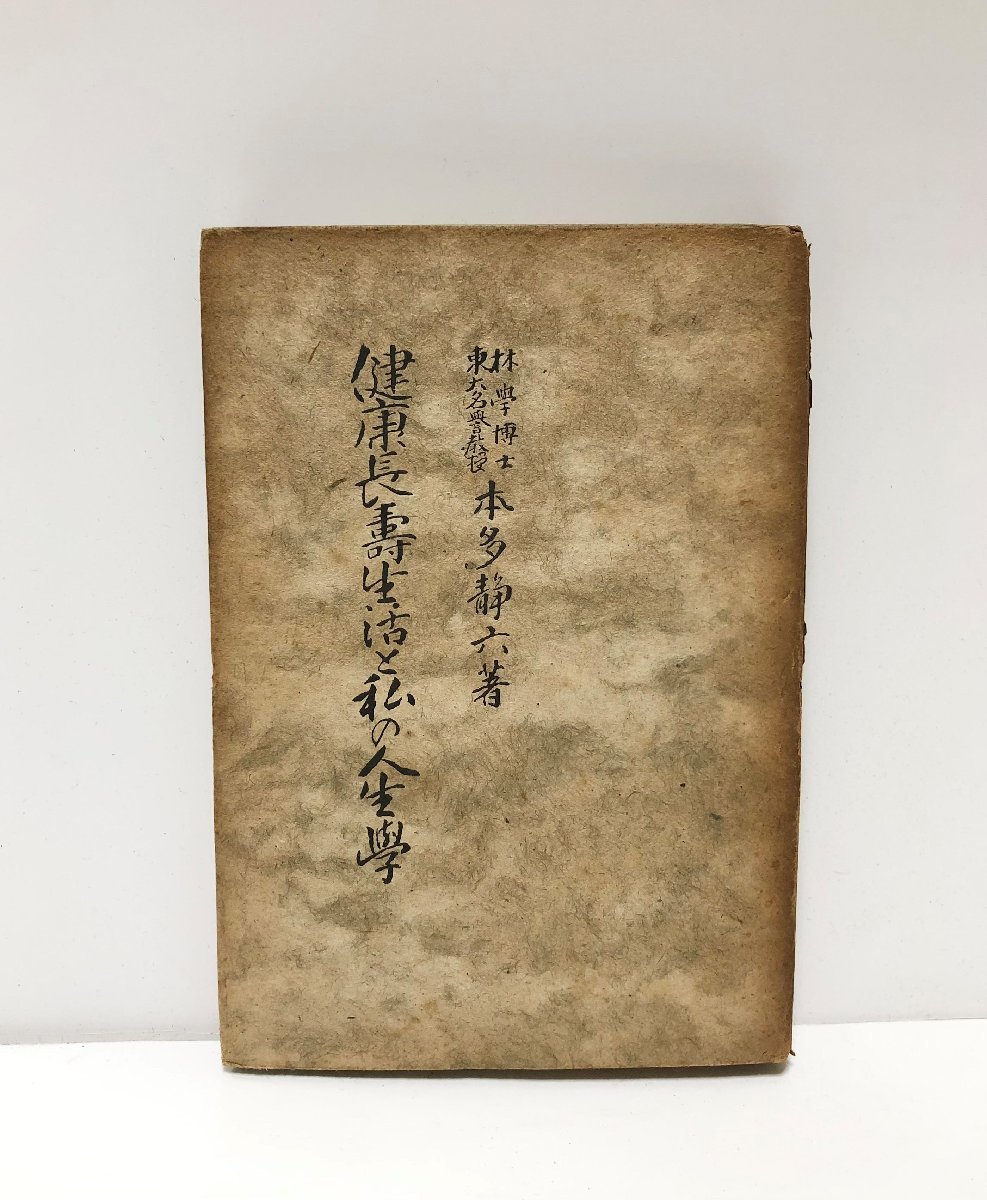 林學博士
東大名譽教授
本多靜六著
健康長壽生活と私の人生學